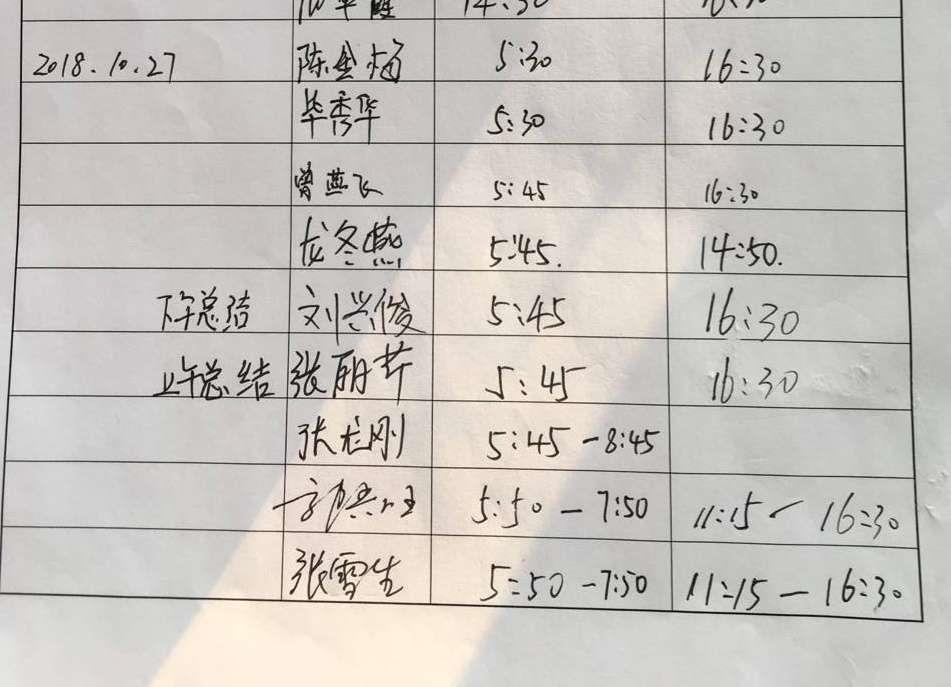 14:30
2018.10.27 陈金梅 5:30 16:30
毕秀华 5:30 16:30
曾燕飞 5:45 16:30
龙冬燕 5:45. 14:50.
下午总结 刘兴俊 5:45 16:30
上午总结 张丽芹 5:45 16:30
张龙刚 5:45-8:45
5:50-7:50 11:15-16:30
张雪生 5:50-7:50 11:15-16:30